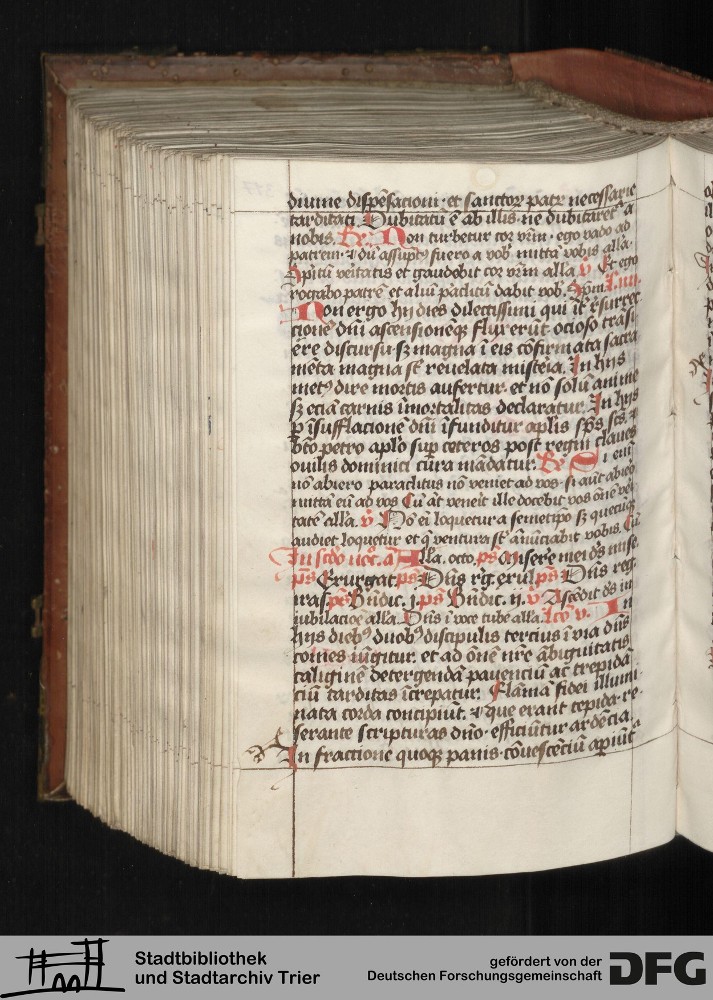 diuine dispēsacioni · et sanctoꝝ patꝝ necessarie
tarditati. Dubitatū ē ab illis · ne dubitaret᷑ a
nobis. Re. Non turbetur cor vr̄m · ego vado ad
patrem · ⁊ dū assūptꝰ fuero a vob̄ mittā vobis alla.
Spm̄ veritatis et gaudebit cor vr̄m alla. v̄ Et ego
rogabo patrē et aliū paclitū dabit vob̄. Spm̄.
Non ergo hij dies dilectissimi qui īt᷑ r̄surrec
cionē dn̄i ascensionēqꝫ fluxerūt ocioso trāsi
ere discursu · sꝫ magna ī eis cōfirmata sacra
mēta magna st̄ reuelata misteia. In hijs
metꝰ dire mortis aufertur · et nō solū anime
sꝫ eciā carnis īmortalitas declaratur. In hijs
ꝑ īsufflacionē dn̄i īfunditur aplis sp̄s sc̄s · ⁊
btō petro aplō suꝑ ceteros post regni claues
ouilis dominici cūra mādatur. Re Si em̄
nō abiero paraclitus nō veniet ad vos · si aūt abiero
mittā eū ad vos Cū āt veneit ille docebit vos ōnē vei
tatē alla. v̄ Nō em̄ loquetur a semetipō sꝫ quecūqꝫ
audiet loquetur et q̄ ventura st̄ ānūciabit vobis. Cū
In scdō noc̄. a Alla. octo. ps̄ Misere mei ds̄ mise.
ps̄ Exurgat. ps̄ Dn̄s rḡ. exul. ps̄ Dn̄s reg.
iras. ps̄ Bn̄dic. j. ps̄ Bn̄dic. ij. v̄ Ascēdit ds̄ in
iubilacioē alla. Dn̄s ī voce tube alla. Lcō v. In
hijs diebꝰ duobꝰ discipulis tercius ī via dn̄s
comes iūgitur · et ad ōnē nr̄e ābiguitatis
caliginē detergendā pauenciū āc trepidā
ciū tarditas īcrepatur. Flāmā fidei illumi
nata corda concipiūt · ⁊ que erant tepida · re
serante scripturas dn̄o · efficiūtur ardēcia
In fractione quoqꝫ panis · cōuescēciū aꝑiūt᷑
Stadtbibliothek
und Stadtarchiv Trier
gefördert von der
Deutschen Forschungsgemeinschaft
DFG